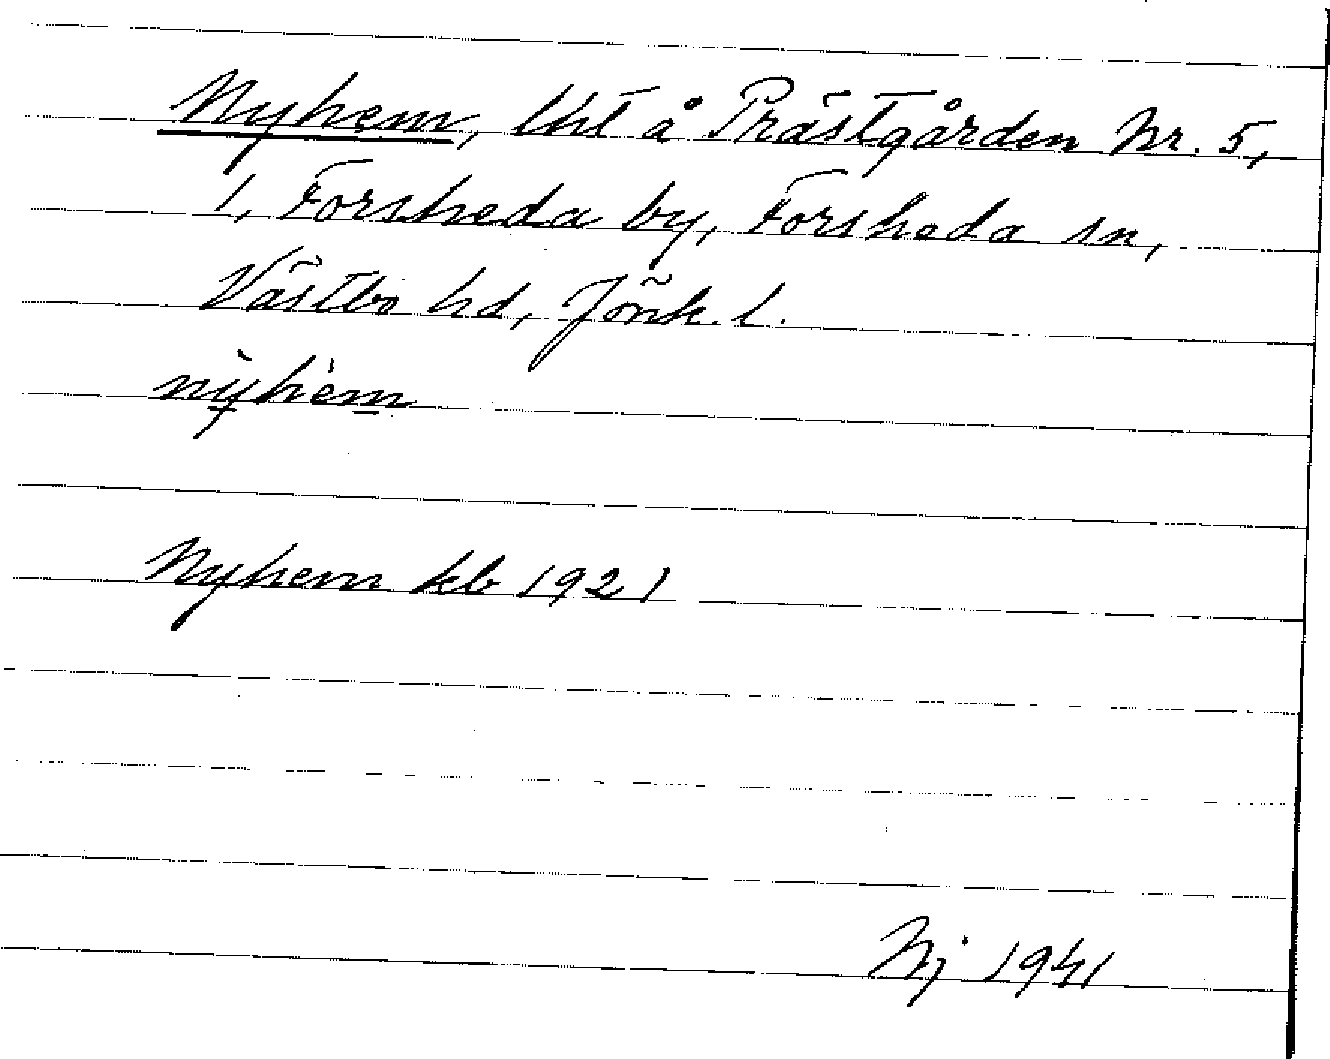 Nyhem, lht å Prästgården Nr. 5,
1, Forsheda by, Forsheda sn,
Västbo hd, Jönk. l.
nỳhèm
Nyhem kb 1921
Nj 1941